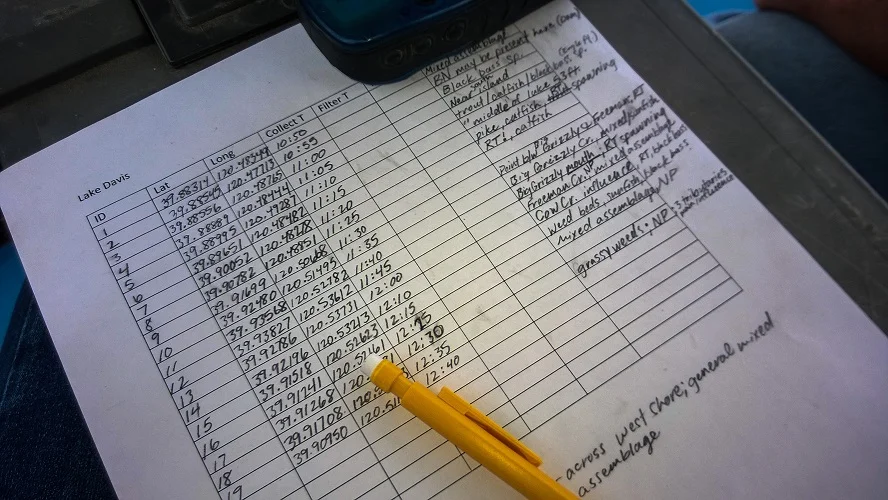 Lake Davis
ID Lat Long Collect T Filter T
1 39.88314 120.48549 10:50
2 39.88545 120.47713 10:55
3 39.88556 120.48765 11:00
4 39.88889 120.48444 11:05
5 39.88995 120.49287 11:10
6 39.89651 120.48482 11:15
7 39.90052 120.48278 11:20
8 39.90782 120.48851 11:25
9 39.91699 120.50168 11:30
10 39.92480 120.51495 11:35
11 39.93568 120.52782 11:40
12 39.93827 120.53612 11:45
13 39.92786 120.53731 12:00
14 39.92196 120.53213 12:10
15 39.91518 120.52623 12:15
16 39.91241 12:25
17 39.91268 12:30
18 39.91708 12:35
19 39.90950 12:40
Mixed assemblage
BN may be present here (Dam)
Black bass sp.
Near island
trout/catfish/black bass
" middle of lake 53ft
pike, catfish, spawning
RTs, catfish
Big Grizzly Cr., mixed/sunfish
Big Grizzly mouth, RT spawning
Freeman Cr., mixed assemblage
Cow Cr. influence, RT, black bass
weed beds, sunfish, black bass
mixed assemblage, NP
grassy weeds, NP
3 tributaries
- across west shore; general mixed
assemblage